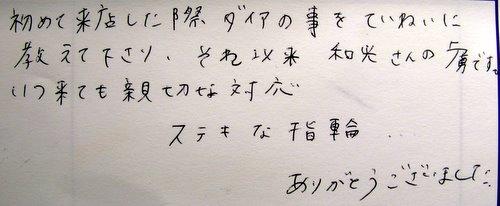 初めて来店した際 ダイアの事をていねいに
教えて下さり、それ以来 和光さんの虜です。
いつ来ても親切な対応
ステキな指輪...
ありがとうございました